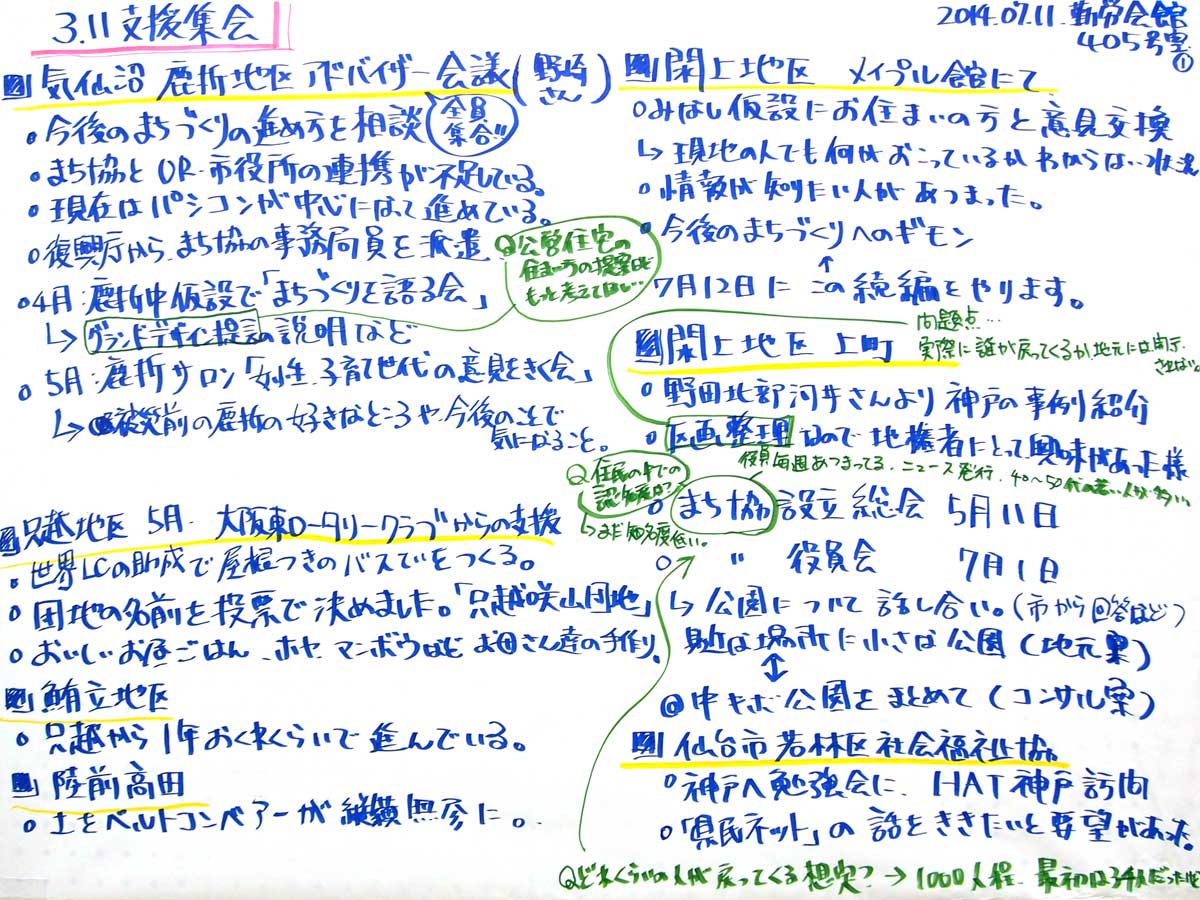 3.11支援集会
2014.07.11.勤労会館
405号室①
気仙沼 鹿折地区 アドバイザー会議(野崎さん)
全員集合!!
○今後のまちづくりの進め方を相談
○まち協とUR・市役所の連携が不足している。
○現在はパシコンが中心になって進めている。
○復興庁から、まち協の事務局員を派遣
○4月:鹿折中仮設で「まちづくりを語る会」
↳グランドデザイン提言の説明など
Q公営住宅の
住まい方の提案など
もっと考えてほしい…
○5月:鹿折サロン「女性、子育て世代の意見をきく会」
↳被災前の鹿折の好きなところや、今後のことで
気になること。
只越地区 5月・大阪東ロータリークラブからの支援
○世界LCの助成で屋根つきのバスてをつくる。
○団地の名前を投票で決めました。「只越咲山団地」
○おいしいお昼ごはん、ホヤ、マンボウなど お母さん達の手作り。
鮪立地区
○只越から1年おくれくらいで進んでいる。
陸前高田
○土をベルトコンベアーが縦横無尽に。
閖上地区 メイプル館にて
○みなし仮設にお住まいの方と意見交換
↳現地の人でも何がおこっているかわからない状況
○情報が知りたい人があつまった。
○今後のまちづくりへのギモン
↑
7月12日に この続編をやります。
閖上地区 上町
問題点…
実際に誰が戻ってくるか、地元には開示
されない。
○野田北部河井さんより 神戸の事例紹介
○区画整理なので地権者にとって興味があった様
役員毎週あつまってる、ニュース発行、40〜50代の若い人が多い…
Q住民の中での
認知度は?
↳まだ知名度低い。
○まち協設立総会 5月11日
○ 〃 役員会 7月1日
↳公園について話し合い。(市から回答など)
身近な場所に小さな公園(地元案)
↕
@中キボ公園をまとめて(コンサル案)
仙台市若林区社会福祉協
○神戸へ勉強会に、HAT神戸訪問
○「県民ネット」の話をききたいと要望があった。
Qどれくらいの人が戻ってくる想定?→1000人程、最初は3千人だったけど